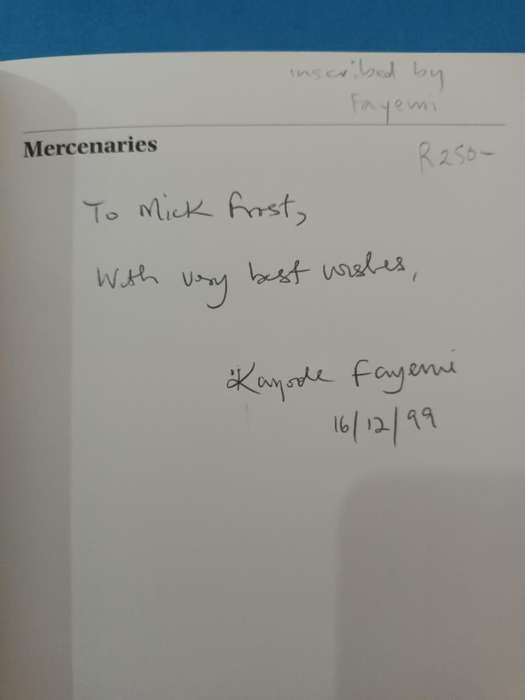 inscribed by
Fayemi
Mercenaries
R250-
To Mick Frost,
With very best wishes,
Kayode Fayemi
16/12/99